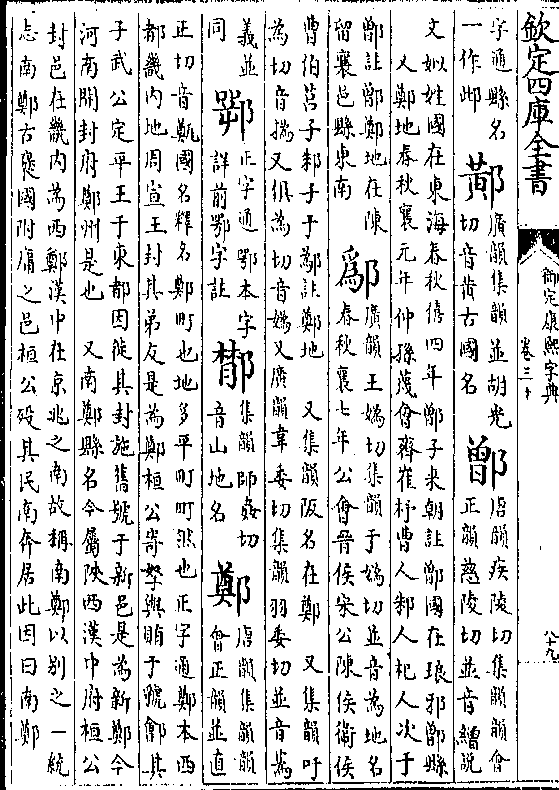 欽定四庫全書
御定康熙字典
卷三十
八十九
字通縣名
一作
廣韻集韻並胡光
切音黃古國名
鄫
唐韻疾陵切集韻韻會
正韻慈陵切並音繒說
文姒姓國在東海春秋僖四年鄫子來朝註鄫國在琅邪鄫縣
又鄭地春秋襄元年仲孫蔑會齊崔杼曹人邾人杞人次于
鄫註鄫鄭地在陳
留襄邑縣東南
鄬
廣韻王嬀切集韻于嬀切並音為地名
春秋襄七年公會晉侯宋公陳侯衛侯
曹伯莒子邾子于鄬註鄭地　又集韻阪名在鄭　又集韻吁
為切音撝又俱為切音嬀又廣韻韋委切集韻羽委切並音蔿
義並
同
正字通鄂本字
詳前鄂字註
集韻師姦切
音山地名
鄭
唐韻集韻韻
會正韻並直
正切音國名釋名鄭町也地多平町町然也正字通鄭本西
都畿內地周宣王封其弟友是為鄭桓公寄孥與賄于虢鄶其
子武公定平王于東都因徙其封施舊號于新邑是為新鄭今
河南開封府鄭州是也　又南鄭縣名今屬陝西漢中府桓公
封邑在畿內為西鄭漢中在京兆之南故稱南鄭以別之一統
志南鄭古襃國附庸之邑桓公歿其民南奔居此因曰南鄭